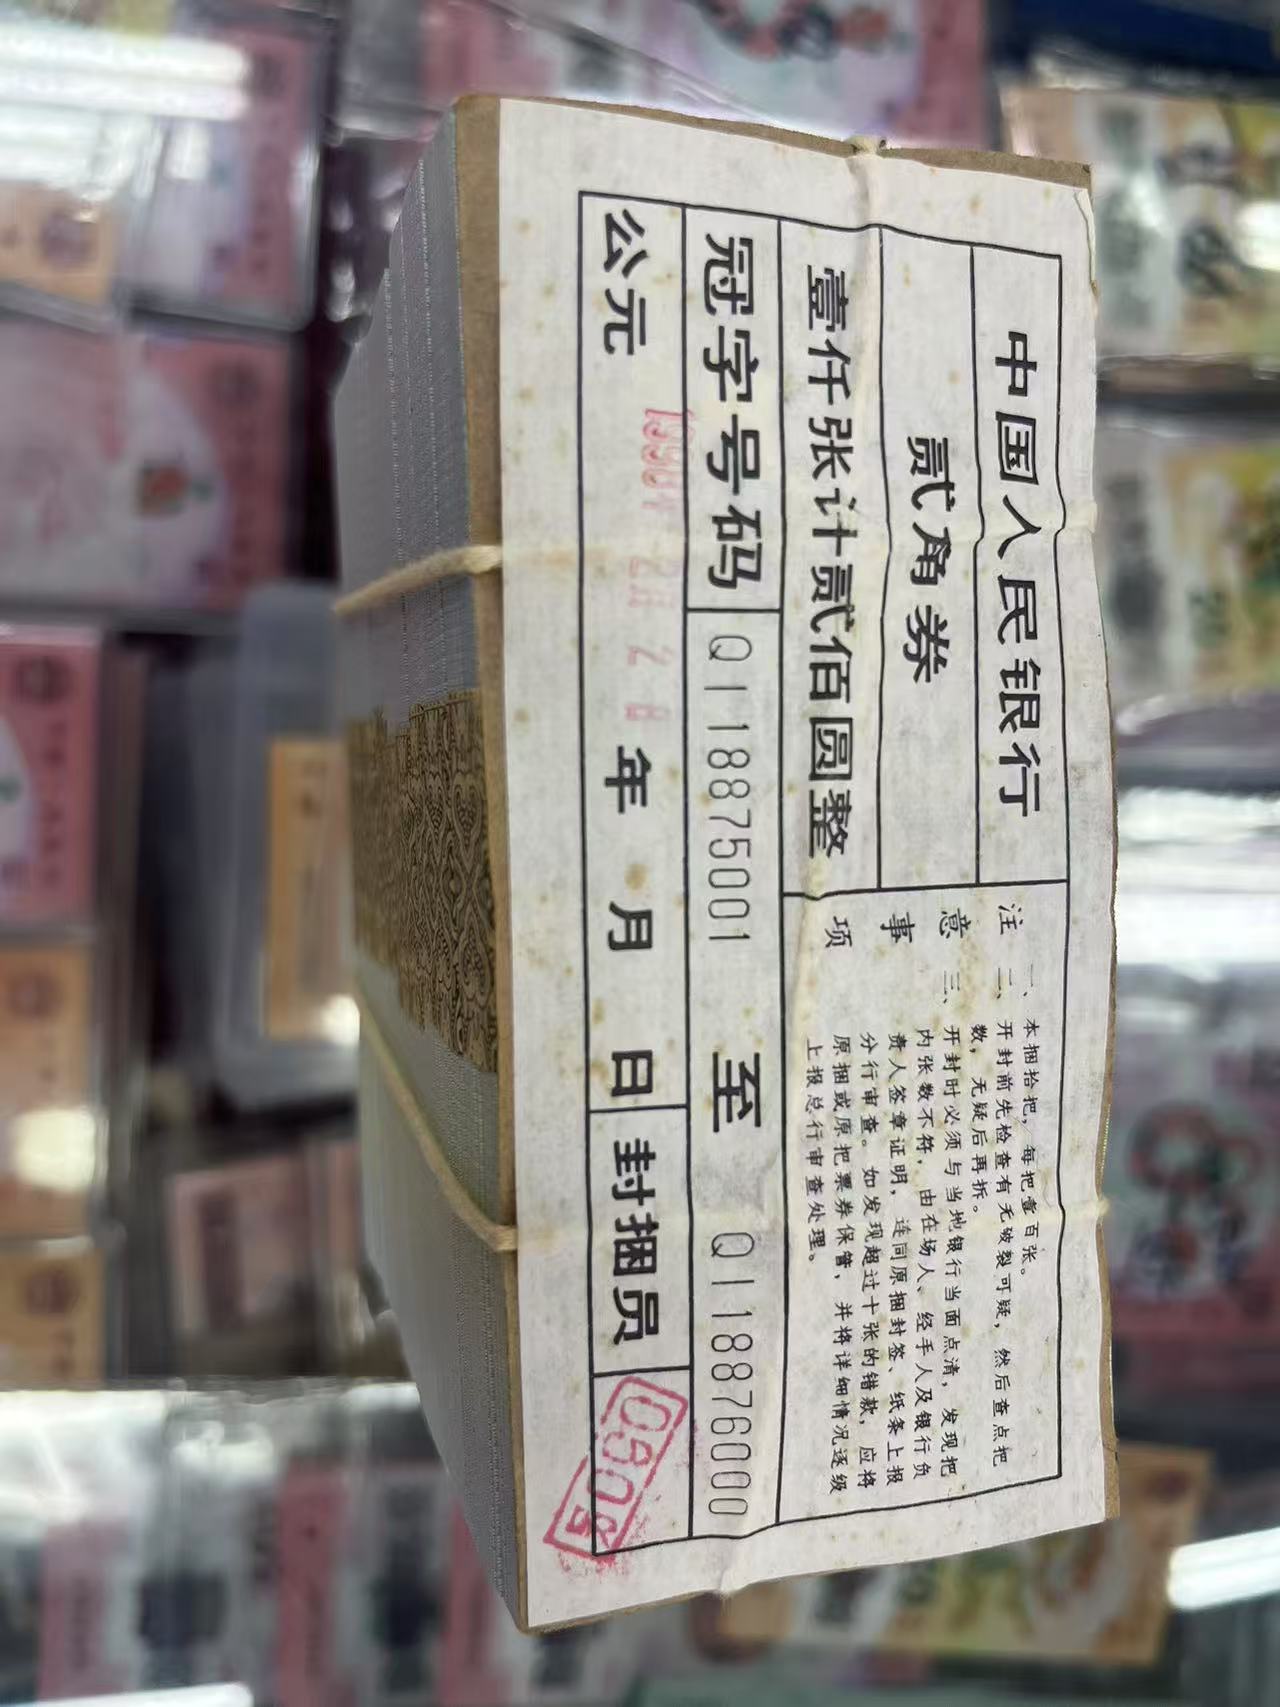 中国人民银行
贰角券
壹仟张计贰佰圆整
注意事项
一、本捆拾把，每把壹百张。
二、开封前先检查有无破裂可疑，然后查点把
数，无疑后再拆。
三、开封时必须与当地银行当面点清，发现把
内张数不符，由在场人、经手人及银行负
责人签章证明，连同原捆封签、纸条上报
分行审查。如发现超过十张的错款，应将
原捆或原把票券保管，并将详细情况逐级
上报总行审查处理。
冠字号码 QI18875001 至 QI18876000
公元 年 月 日 封捆员